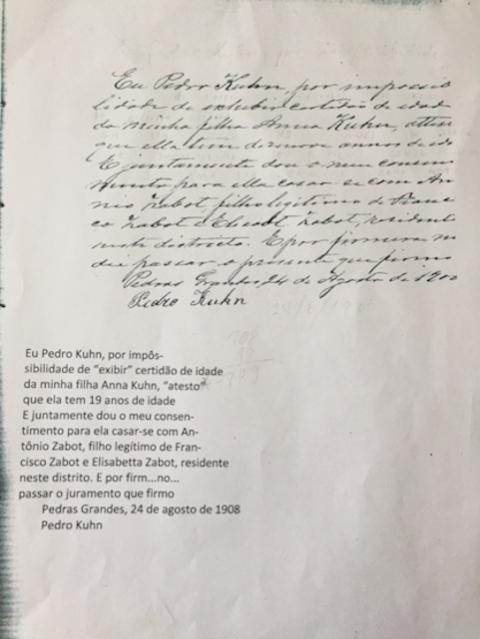 Eu Pedro Kuhn, por impossi
lidade de exhibir certidão de edad
da minha filha Anna Kuhn, attes
que ella tem dezenove annos de id
E juntamente dou o meu consen
mento para ella casar-se com An
nio Zabot, filho legitimo de Franc
co Zabot e Zabot, resident
neste districto. E por firmeza m
dei passar o presente que firmo
Pedras Grandes, 24 de Agosto de
Pedro Kuhn
Eu Pedro Kuhn, por impôs-
sibilidade de “exibir” certidão de idade
da minha filha Anna Kuhn, “atesto”
que ela tem 19 anos de idade
E juntamente dou o meu consen-
timento para ela casar-se com An-
tônio Zabot, filho legítimo de Fran-
cisco Zabot e Elisabetta Zabot, residente
neste distrito. E por firm...no...
passar o juramento que firmo
Pedras Grandes, 24 de agosto de 1908
Pedro Kuhn